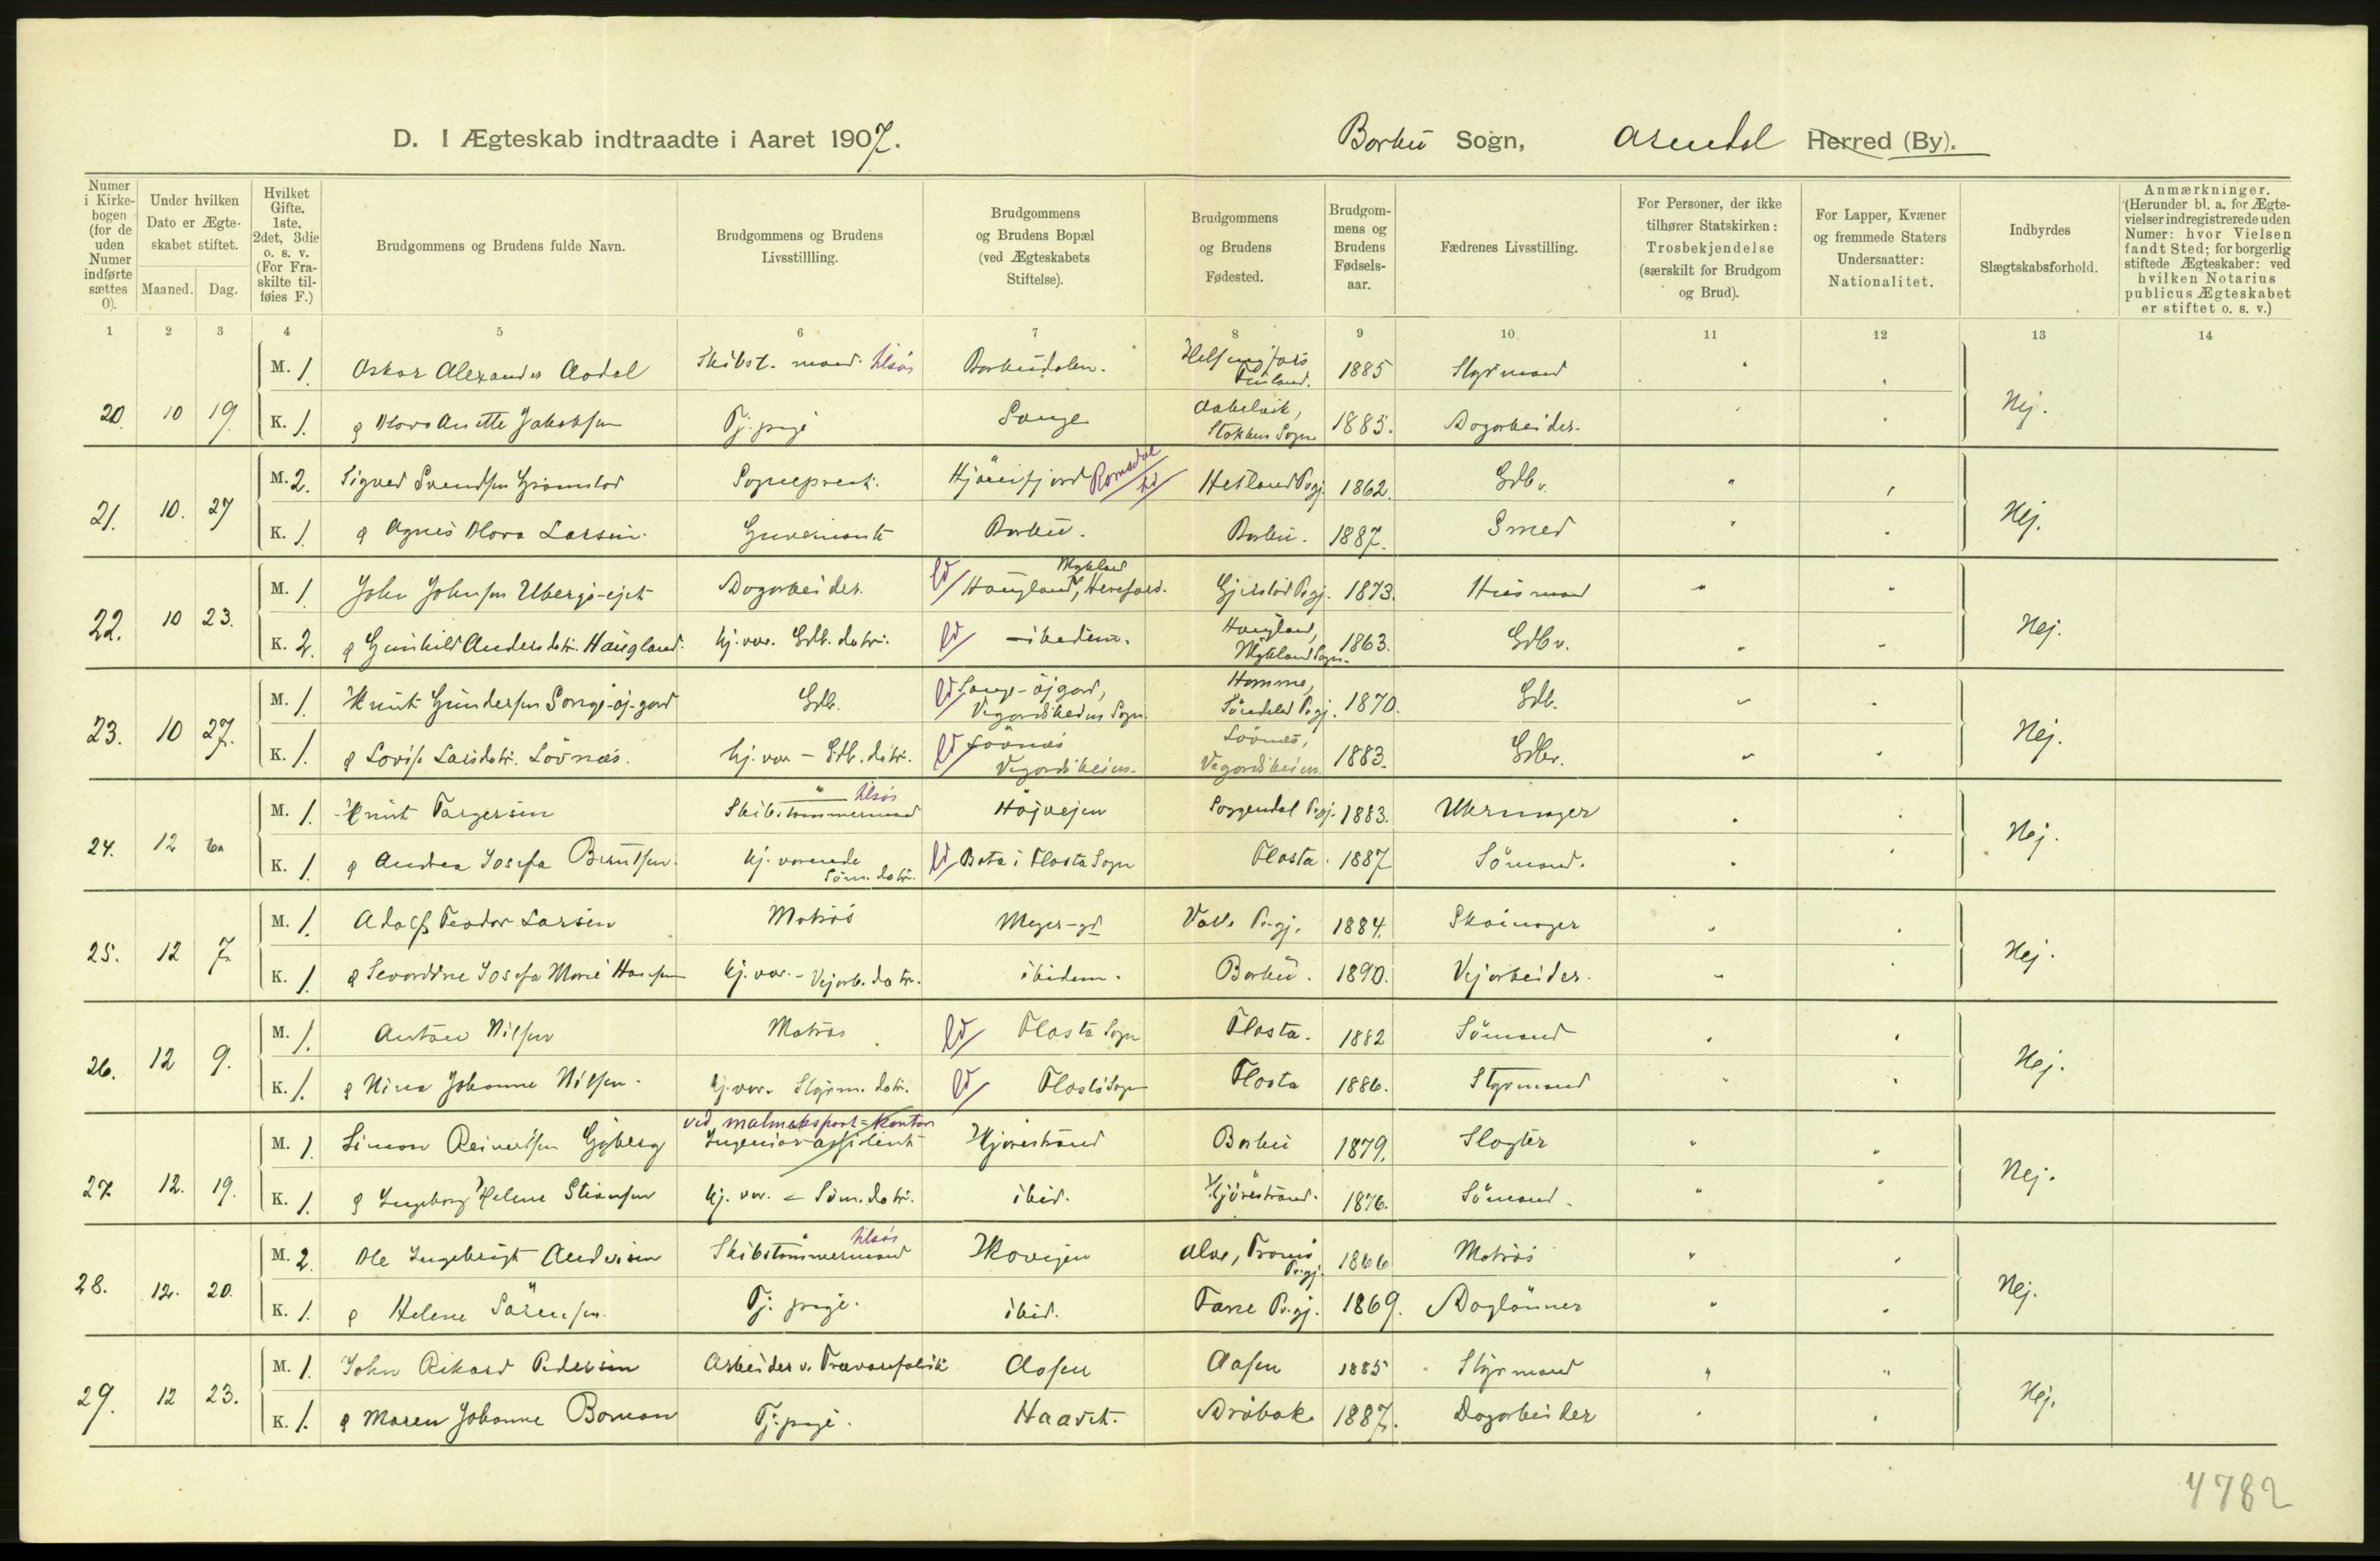 D. I Ægteskab indtraadte i Aaret 1907.
Barbu Sogn, Arendal Herred (By).
Numer i Kirkebogen (for de uden Numer indførte sættes 0).
Under hvilken Dato er Ægteskabet stiftet.
Maaned. Dag.
Hvilket Gifte. 1ste, 2det, 3die o. s. v. (For Fraskilte tilføies F.)
Brudgommens og Brudens fulde Navn.
Brudgommens og Brudens Livsstillling.
Brudgommens og Brudens Bopæl (ved Ægteskabets Stiftelse).
Brudgommens og Brudens Fødested.
Brudgommens og Brudens Fødselsaar.
Fædrenes Livsstilling.
For Personer, der ikke tilhører Statskirken: Trosbekjendelse (særskilt for Brudgom og Brud).
For Lapper, Kvæner og fremmede Staters Undersaatter: Nationalitet.
Indbyrdes Slægtskabsforhold.
Anmærkninger. (Herunder bl. a. for Ægtevielser indregistrerede uden Numer: hvor Vielsen fandt Sted; for borgerlig stiftede Ægteskaber: ved hvilken Notarius publicus Ægteskabet er stiftet o. s. v.)
1 2 3 4 5 6 7 8 9 10 11 12 13 14
M. 1. Oskar Alexander Aadal Skibst. mand. tilsøs Barbudalen. Helsingfors Finland. 1885 Styrmand
20. 10 19. K. 1. g Olava Anette Jakobsen Tj. pige Songe Stokken Sogn 1883. Dagarbeider. Nej.
M. 2. Sigved Svendsen Gramstad Sogneprest. Hjörenfjord Romsdal Hetland Prgj. 1862. Gdbr.
21. 10. 27 K. 1. g Agnes Olava Larsen. Guvernante Barbu. Barbu. 1887. Smed Nej.
M. 1. John Johnsen Ubergs-ejet Dagarbeider. ld Haugland, Mykland, Herefoss. Gjerstad Prgj. 1873. Husmand
22. 10 23. K. 2. g Gunhild Andersdatr. Haugland. hj. vær. Gdb. datr. ld ibidem. Haugland, Mykland Sogn. 1863. Gdbr. Nej.
M. 1. Knut Gundersen Songe-øj-gard Gdb. ld Songe-øjgard, Vegardsheien Sogn. Homme, Söndeled Prgj. 1870. Gdb.
23. 10 27. K. 1. g Lovise Larsdatr. Lövnæs. hj. vær - Gdb. datr. ld Lövnæs Vegardsheien. Lövnæs, Vegardsheien 1883. Gdbr. Nej.
M. 1. Knut Targersen Skibstømmermand tilsøs Højvejen Soggendal Prgj. 1883. Uhrmager
24. 12 K. 1. g Andrea Josefa Berntsen. hj. værende Søm. datr. ld Bota i Flosta Sogn Flosta. 1887 Sömand. Nej.
M. 1. Adolf Teodor Larsen Matros Meyer-gd Valle Prgj. 1884. Skomager
25. 12 7. K. 1. g Sevardine Josefa Marie Hansen hj. vær. - Vejarb. datr. ibidem. Barbu. 1890. Vejarbeider. Nej.
M. 1. Anton Nilsen Matros ld Flosta Sogn Flosta. 1882 Sömand
26. 12 9. K. 1. g Nina Johanne Nilsen. hj. vær. Styrm. datr. ld Flosta Sogn Flosta 1886. Styrmand Nej.
M. 1. Simon Reinertsen Gyberg ved malmeksport-kontor Ingeniørassistent Kjørestrand Barbu 1879. Slagter
27. 12. 19. K. 1. g Ingeborg Helene Stiansen hj. vær. - Söm. datr. ibid. Kjörestrand. 1876. Sömand. Nej.
M. 2. Ole Ingebrigt Andersen Skibstømmermand tilsøs Skovejen Alve, Tromø Prgj. 1866 Matros
28. 12. 20. K. 1. g Helene Sörensen. Tj. pige. ibid. Prgj. 1869. Daglönner Nej.
M. 1. John Rikard Pedersen Arbeider v. Trævarefabrik Aasen Aasen 1885 Styrmand
29. 12 23. K. 1. g Maren Johanne Boman Tj. pige. Haavet. Drøbak 1887. Dagarbeider Nej.
4782